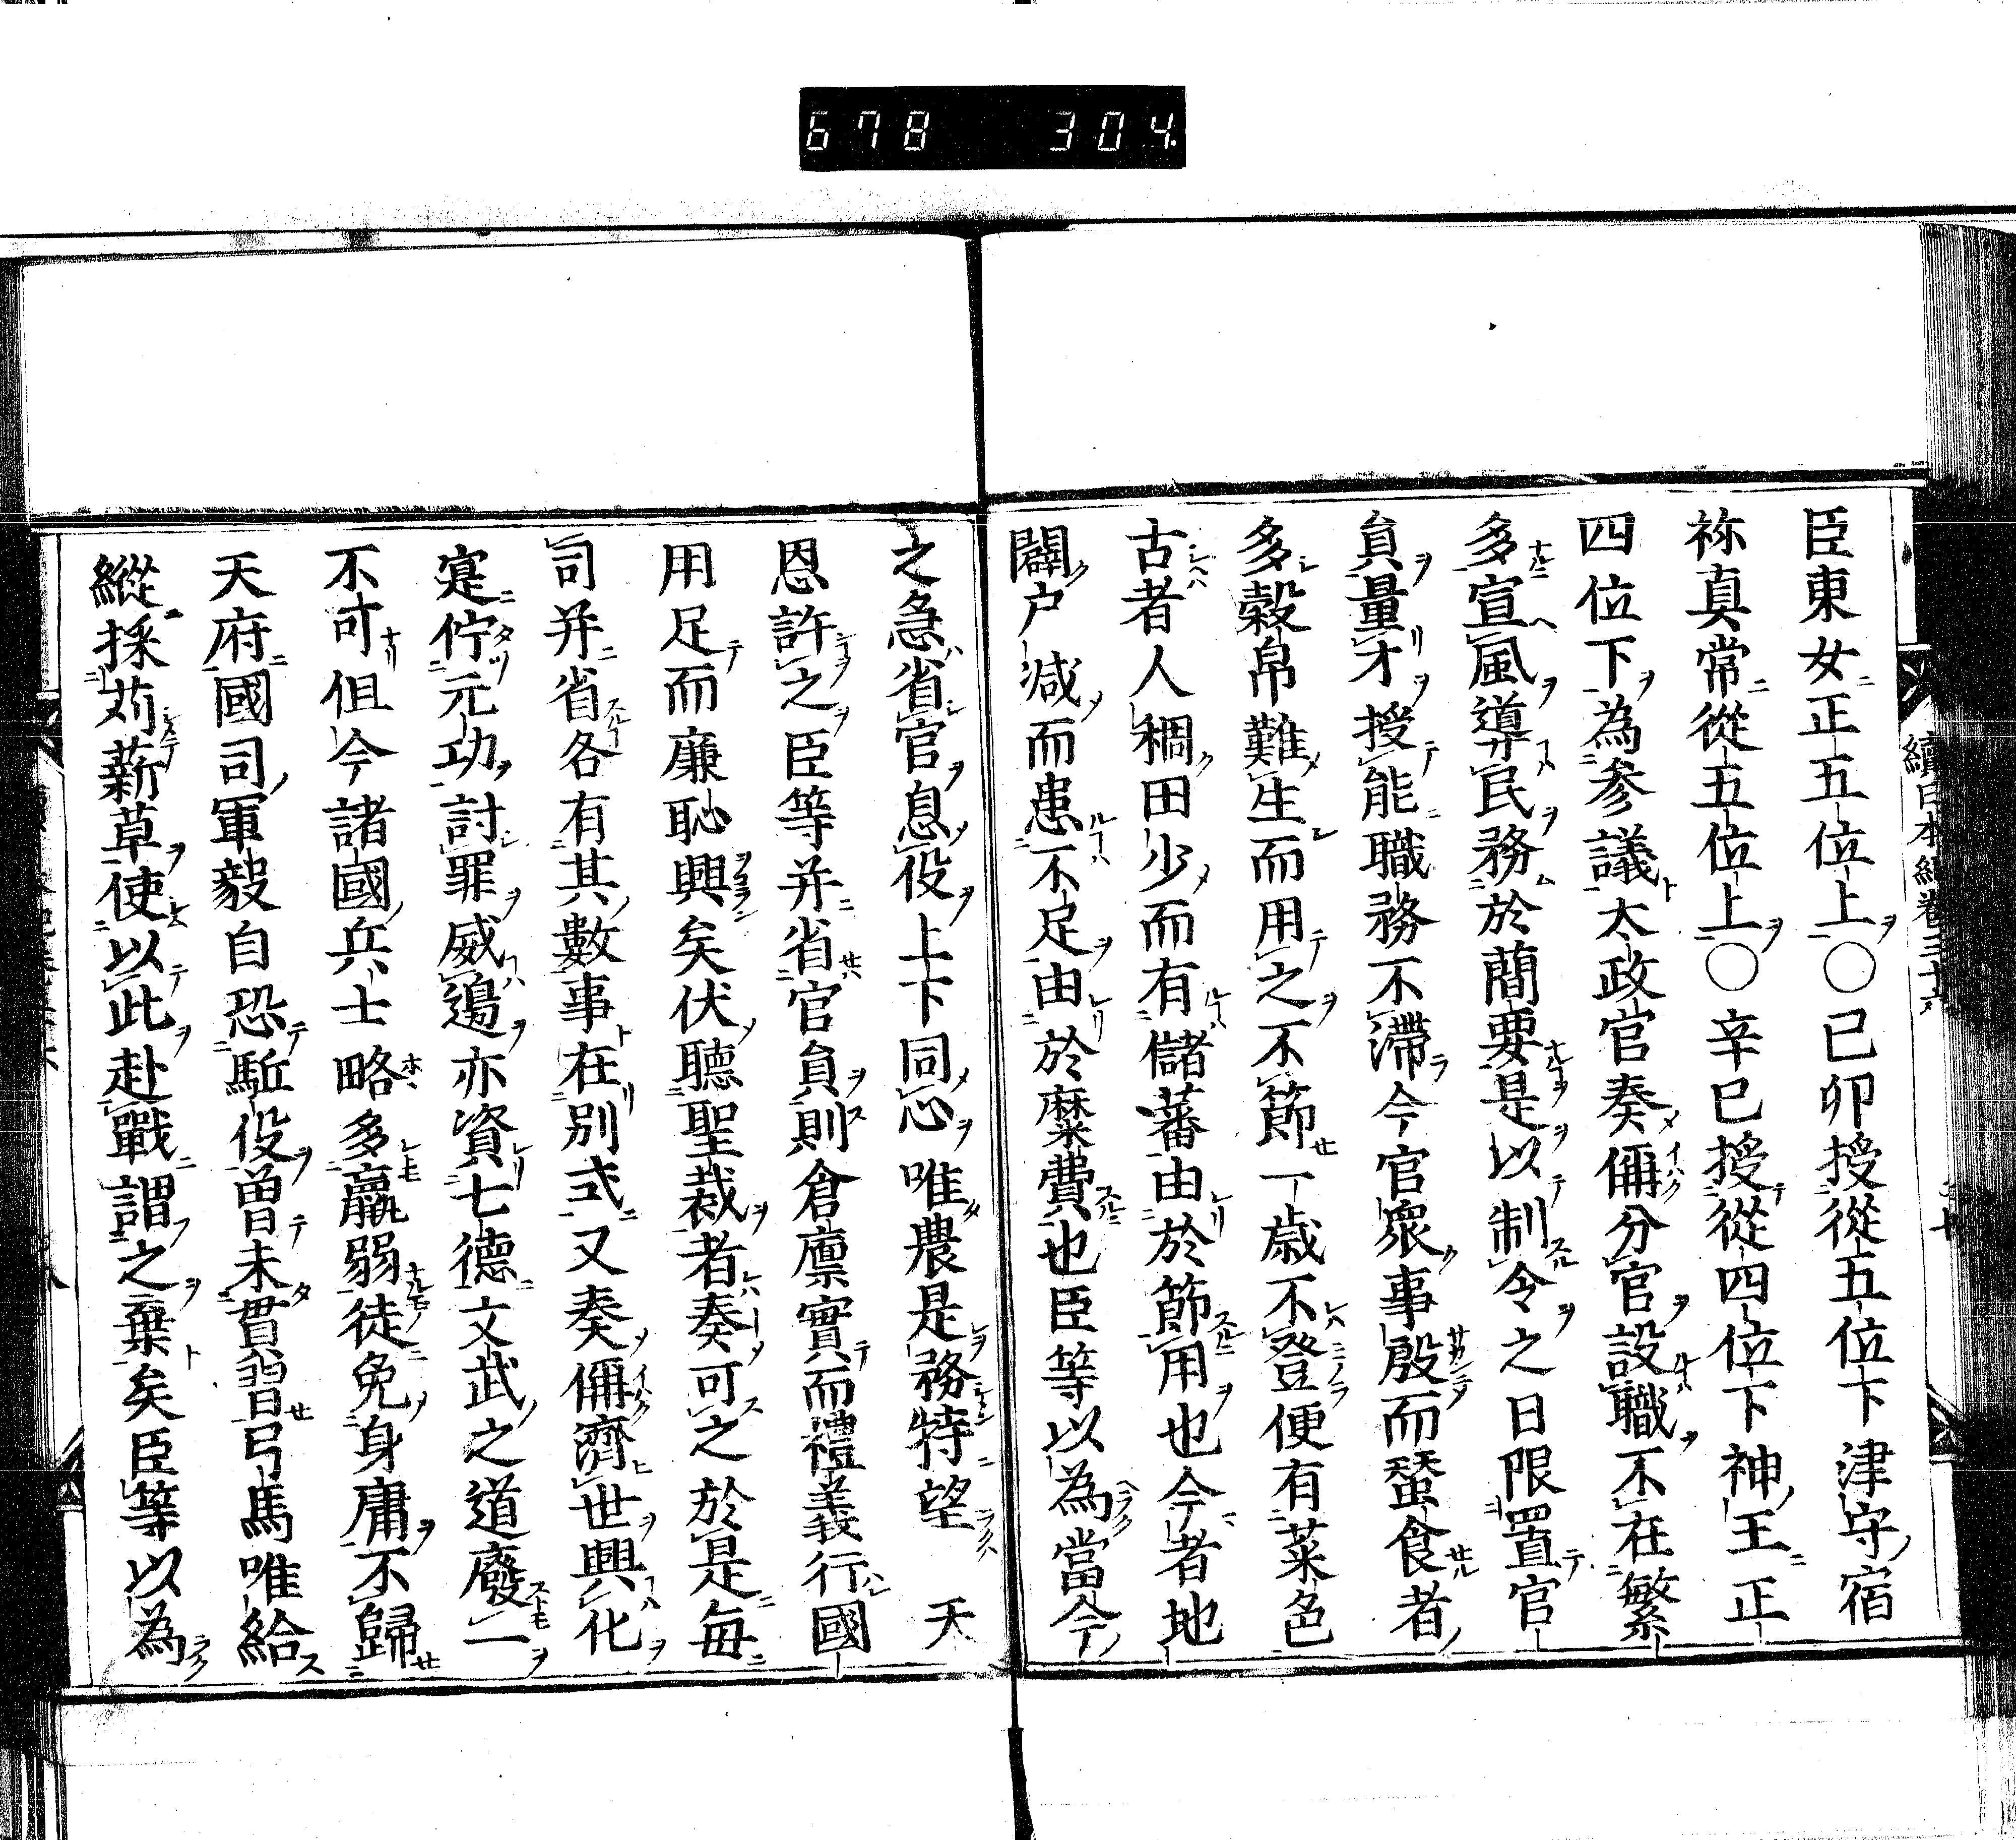 678 304.
臣東女正五位上○己卯授從五位下津守宿
祢真常從五位上○辛巳授從四位下神王正
四位下為参議太政官奏偁分官設職不在繁
多宣風導民務於蕳要是以制令之日限置官
負量才授能職務不滯今官衆事殷而蚕食者
多穀帛難生而用之不節一歳不登便有菜色
古者人稠田少而有儲蕃由於節用也今者地
闢户减而患不足由於糜費也臣等以為當今
之急省官息役上下同心唯農是務特望 天
恩許之臣等并省官負則倉廪實而禮義行國
用足而廉恥興矣伏聽聖裁者奏可之於是毎
司并省各有其數事在别式又奏偁濟世興化
寔佇元功討罪威邊亦資七德文武之道廢一
不可但今諸國兵士略多羸弱徒免身庸不歸
天府國司軍毅自恐駈役曽未貫習弓馬唯給
縱採苅薪草使以此赴戰謂之棄矣臣等以為